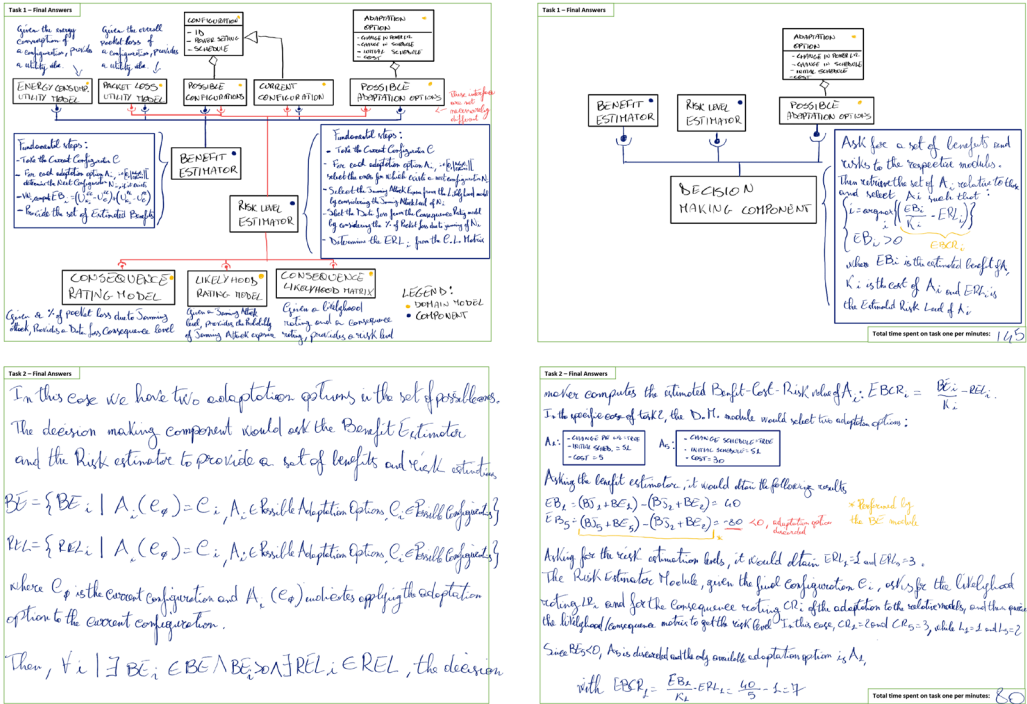 Task 1 – Final Answers
Given the energy
consumption of
a configuration, provides
a utility value
Given the overall
packet loss of
a configuration, provides
a utility value
CONFIGURATION
- ID
- POWER SETTING
- SCHEDULE
ADAPTATION
OPTION
- CHANGE IN POWER LVL
- CHANGE IN SCHEDULE
- INITIAL SCHEDULE
- COST
ENERGY CONSUMP.
UTILITY MODEL
PACKET LOSS
UTILITY MODEL
POSSIBLE
CONFIGURATIONS
CURRENT
CONFIGURATION
POSSIBLE
ADAPTATION OPTIONS
These interfaces
are not
necessarily
different
Fundamental steps:
- Take the Current Configuration C
- For each adaptation option Ai,
determine the Next Configuration
- Provide the set of Estimated Benefits
BENEFIT
ESTIMATOR
RISK LEVEL
ESTIMATOR
Fundamental steps:
- Take the Current Configuration C
- For each adaptation option Ai,
select the ones for which exists a next configuration Ni
- Select the Jamming Attack from the Likelihood model
by considering the Jamming Attack level of Ni
- Select the Data loss from the Consequence Rating model
by considering the % of Packet loss due to jamming of Ni
- Determine the ERLi from the C.L. Matrix
CONSEQUENCE
RATING MODEL
LIKELYHOOD
RATING MODEL
CONSEQUENCE
LIKELYHOOD MATRIX
Given a % of packet loss due to Jamming
attack, Provides a Data loss Consequence level
Given a Jamming Attack
level, provides the Probability
of Jamming Attack
Given a likelyhood
rating and a consequence
rating, provides a risk level
LEGEND:
DOMAIN MODEL
COMPONENT
Task 1 – Final Answers
ADAPTATION
OPTION
- CHANGE IN POWER LVL
- CHANGE IN SCHEDULE
- INITIAL SCHEDULE
- COST
BENEFIT
ESTIMATOR
RISK LEVEL
ESTIMATOR
POSSIBLE
ADAPTATION OPTIONS
DECISION
MAKING COMPONENT
Ask for a set of benefits and
risks to the respective modules.
Then retrieve the set of Ai relative to those
and select Ai such that:
{ i = argmax i ( EBi / Ki - ERLi )
EBi > 0
EBCRi
where EBi is the estimated benefit of Ai
Ki is the cost of Ai and ERLi is
the Estimated Risk Level of Ai
Total time spent on task one per minutes: 145
Task 2 – Final Answers
In this case we have two adaptation options in the set of possible ones.
The decision making component would ask the Benefit Estimator
and the Risk estimator to provide a set of benefits and risk estimations
BE = { BEi | Ai (C∅) = Ci, Ai ∈ Possible Adaptation Options, Ci ∈ Possible Configurations }
REL = { RELi | Ai (C∅) = Ci, Ai ∈ Possible Adaptation Options, Ci ∈ Possible Configurations }
where C∅ is the current configuration and Ai (C∅) indicates applying the adaptation
option to the current configuration.
Then, ∀i | ∃ BEi ∈ BE ∧ BEi > 0 ∧ ∃ RELi ∈ REL, the decision
Task 2 – Final Answers
maker computes the estimated Benefit-Cost-Risk value of Ai: EBCRi = BEi / Ki - RELi.
In the specific case of task 2, the D.M. module would select two adaptation options:
A1:
- CHANGE PW LVL = TRUE
- INITIAL SCHED. = S1
- COST = 5
A5:
- CHANGE SCHEDULE = TRUE
- INITIAL SCHEDULE = S1
- COST = 30
Asking the benefit estimator, it would obtain the following results
EB1 = (BJ1 + BE1) - (BJ2 + BE2) = 40
EB5 = (BJ5 + BE5) - (BJ2 + BE2) = -80 < 0, adaptation option
discarded
* Performed by
the BE module
*
Asking for the risk estimation levels, it would obtain ERL1 = 1 and ERL5 = 3.
The Risk Estimator Module, given the final configuration Ci, asks for the likelyhood
rating LRi and for the consequence rating CRi of the adaptation to the relative models, and then queries
the likelyhood/consequence matrix to get the risk level. In this case, CR1 = 2 and CR5 = 3, while L1 = 1 and L5 = 2
Since BE5 < 0, A5 is discarded and the only available adaptation option is A1,
with EBCR1 = EB1 / K1 - ERL1 = 40 / 5 - 1 = 7
Total time spent on task one per minutes: 80